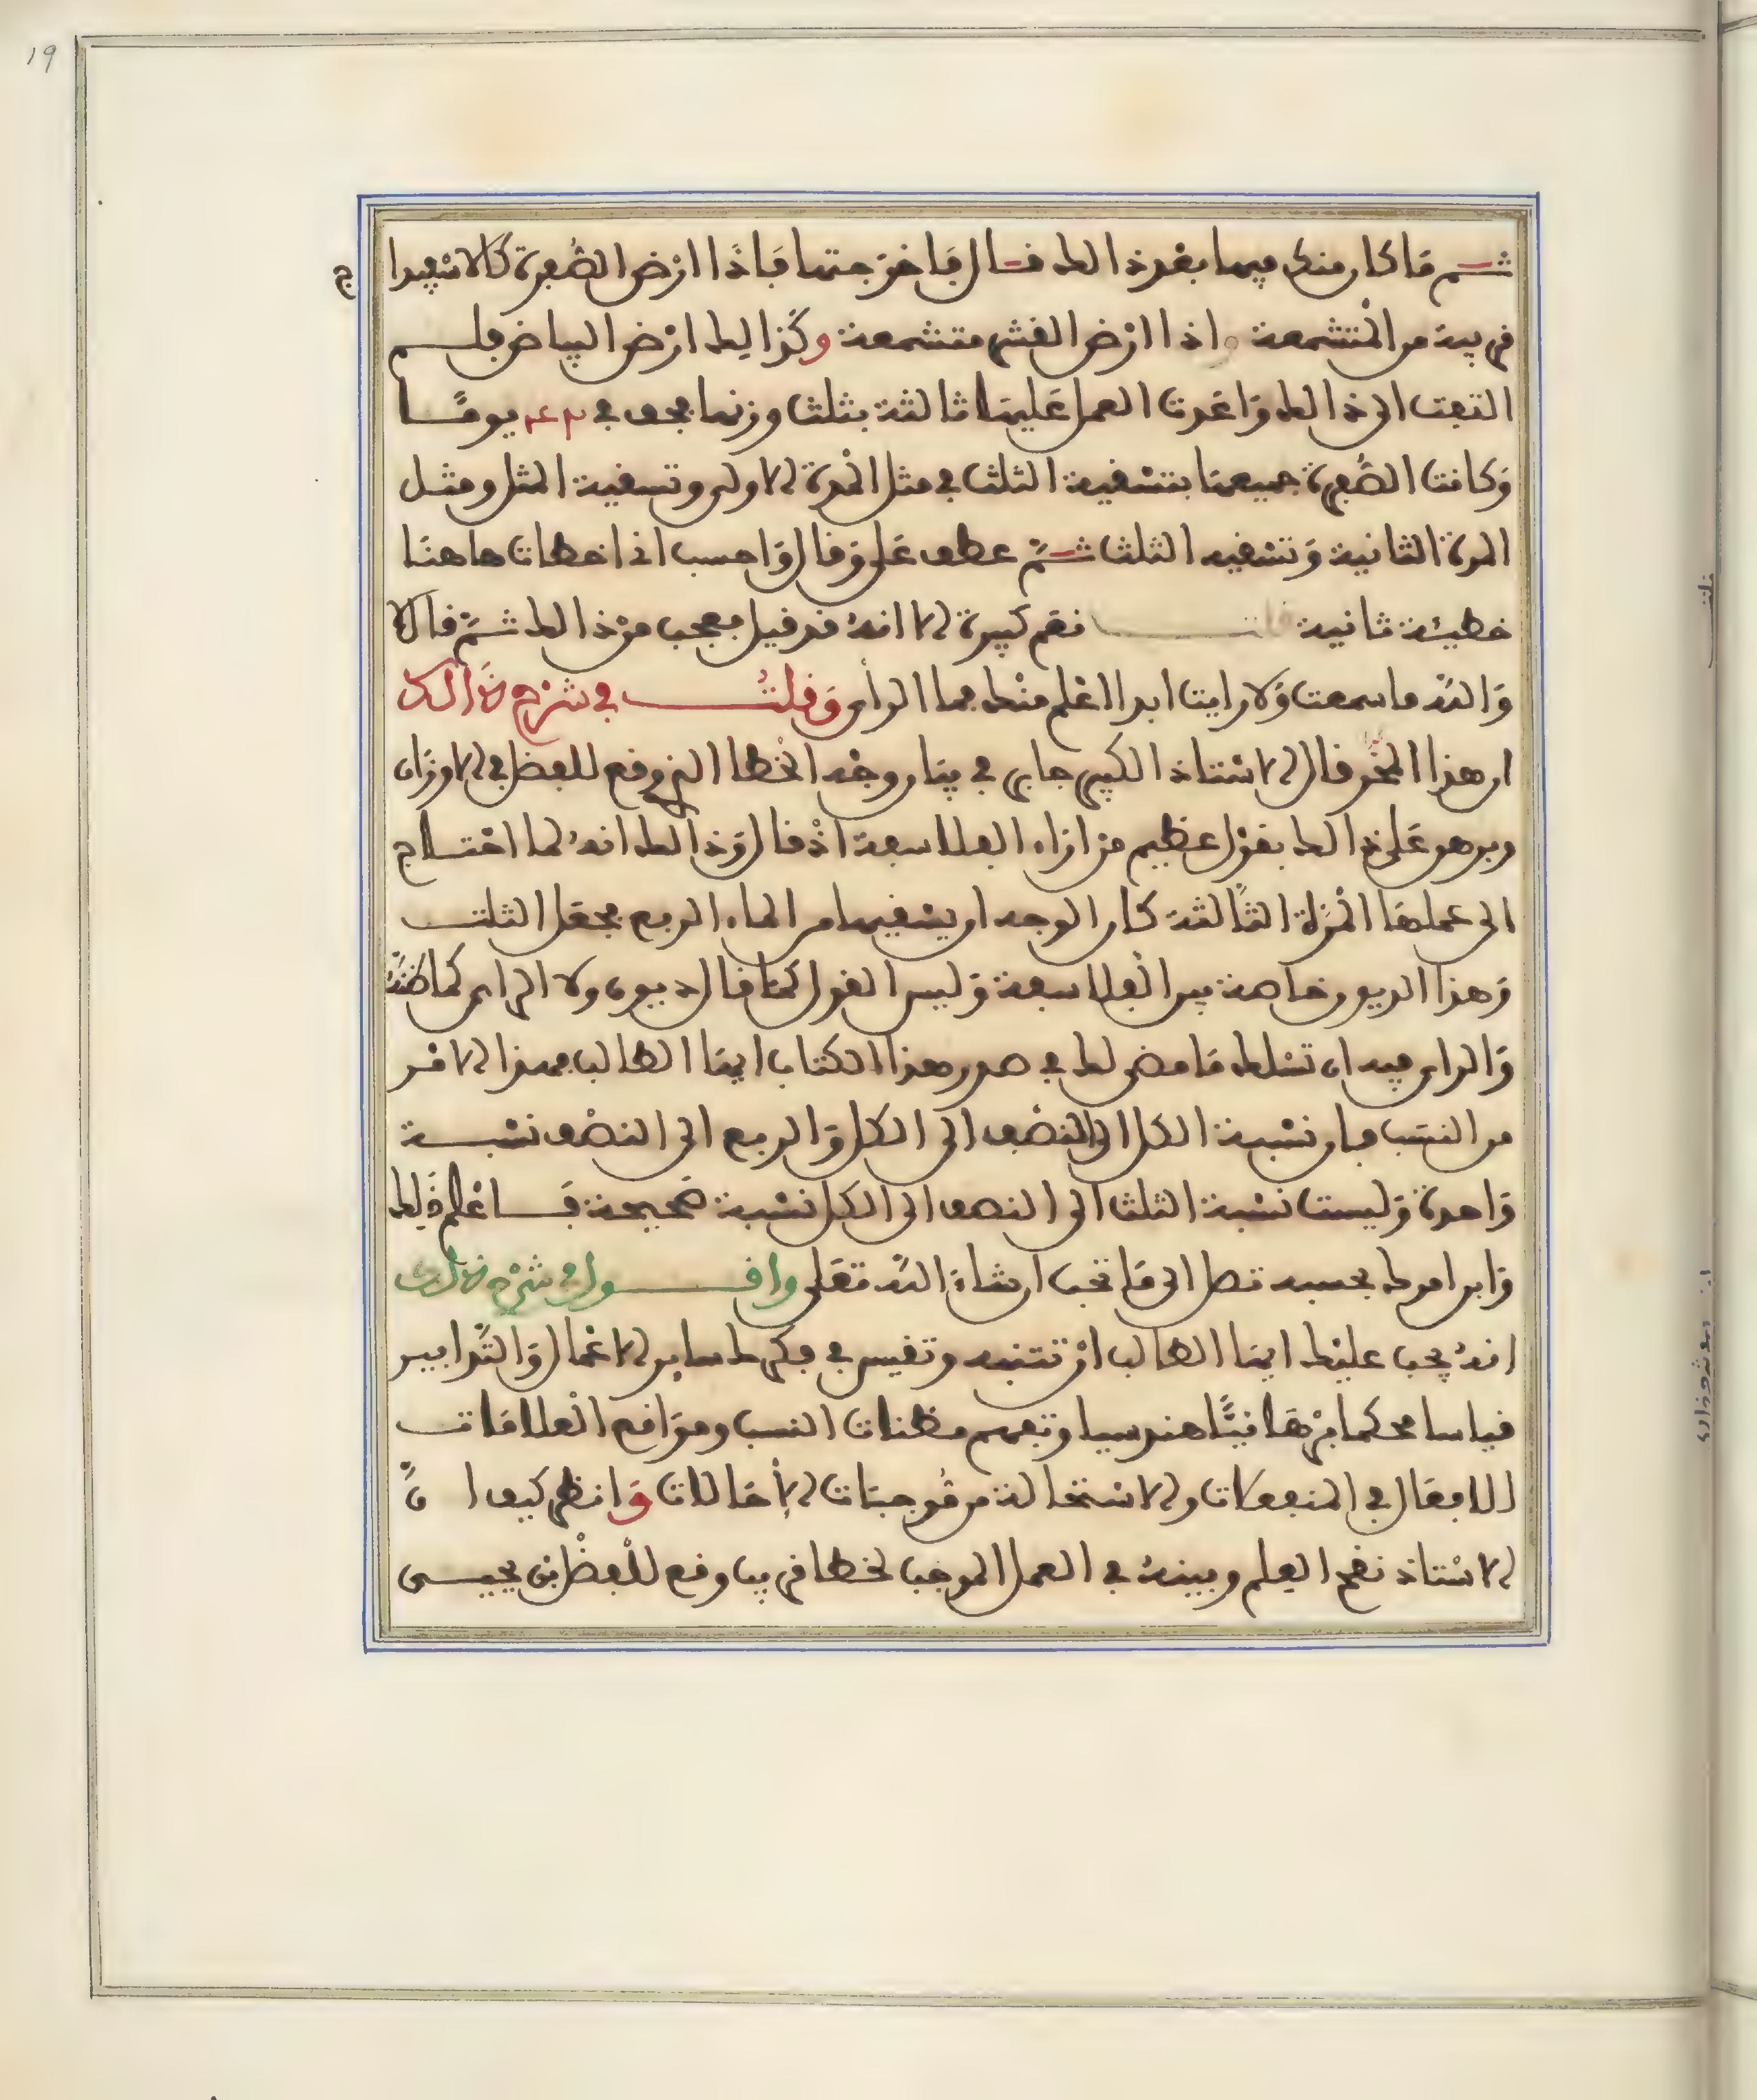 19
ثم ما كان منك فيما بعد ذالك فقال فاخرجتها فاذا ارض الصفرة كالاسفيدا ج
قريبة من المتشمعة واذا ارض القشر متشمعة وكذالك ارض البياض فلم
التفت الى ذالك واعدت العمل عليها ثالثة بثلث وزنها يجف في يوما
وكانت الصفرة جميعها بتسقية الثلث في مثل المدة الاولى وتسقية المثل ومثل
المدة الثانية وتسقيه الثلث ثم عطف علي وقال واحسب اني اخطات هاهنا
خطيئة ثانية قلت نعم كبيرة الا انه قد قيل فعجب من ذالك ثم قال لا
والله ما سمعت ولا رايت ابدا اعلم منك فما الرأي وقلت في شرح ذالك
ان هذا النحو قال الاستاذ الكبير جابر في بيان وجه الخطا الذي وقع للفضل في الاوزان
وبرهن على ذالك بقول عظيم من اراء الفلاسفة اذ قال وذالك انه لما احتاج
الى عملها المرة الثالثة كان الوجه ان يسقيها من الماء الربع فجعل الثلث
وهذا الديون خاصة بين الفلاسفة وليس القول كما قال ديون ولا الراي كما ظنه
والراي فيه ان تسلك ما مضى لك في صدر هذا الكتاب ايها الطالب فهذا الامر
من النسب فان نسبة الكل الى النصف الى الكل والربع الى النصف نسبة
واحدة وليست نسبة الثلث الى النصف الى الكل نسبة صحيحة فاعلم ذلك
وابن امرك بحسبه تصل الى ما تحب ان شاء الله تعلى واقول في شرح ذالك
انه يجب عليك ايها الطالب ان تتنبه وتقيس في فكرك ساير الاعمال والتدابير
قياسا محكما برهانيا هندسيا وتفهم مظنات النسب ومواقع العلامات
للافعال في المنفعلات والاستحالة من موجبات الاحالات وانظر كيف ان
الاستاذ نقح العلم وبينه في العمل الموجب لخطا قريب وقع للفضل بن يحيى